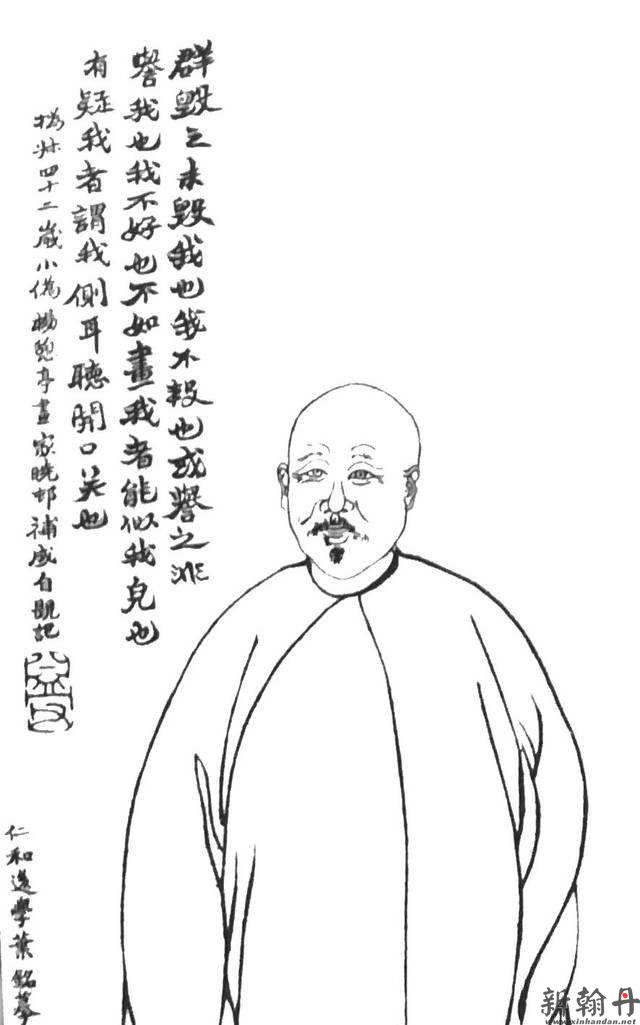 群毀之未毀我也我不報也或譽之非
譽我也我不好也不如畫我者能似我皃也
有疑我者謂我側耳聽開口笑也
撝叔四十二歲小像楊憩亭畫家曉邨補成自題記
仁和後學葉銘摹
新翰丹
www.xinhandan.net